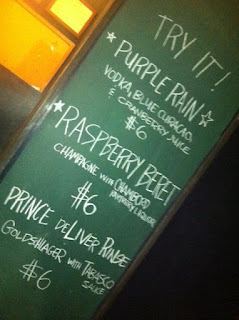 TRY IT!
☆ PURPLE RAIN ☆
VODKA, BLUE CURACAO,
& CRANBERRY JUICE
$6
☆ RASPBERRY BERET
CHAMPAGNE WITH CHAMBORD
RASPBERRY LIQUOR
$6
PRINCE DELIVER RINSE
GOLDSHLAGER WITH TABASCO
SAUCE
$6